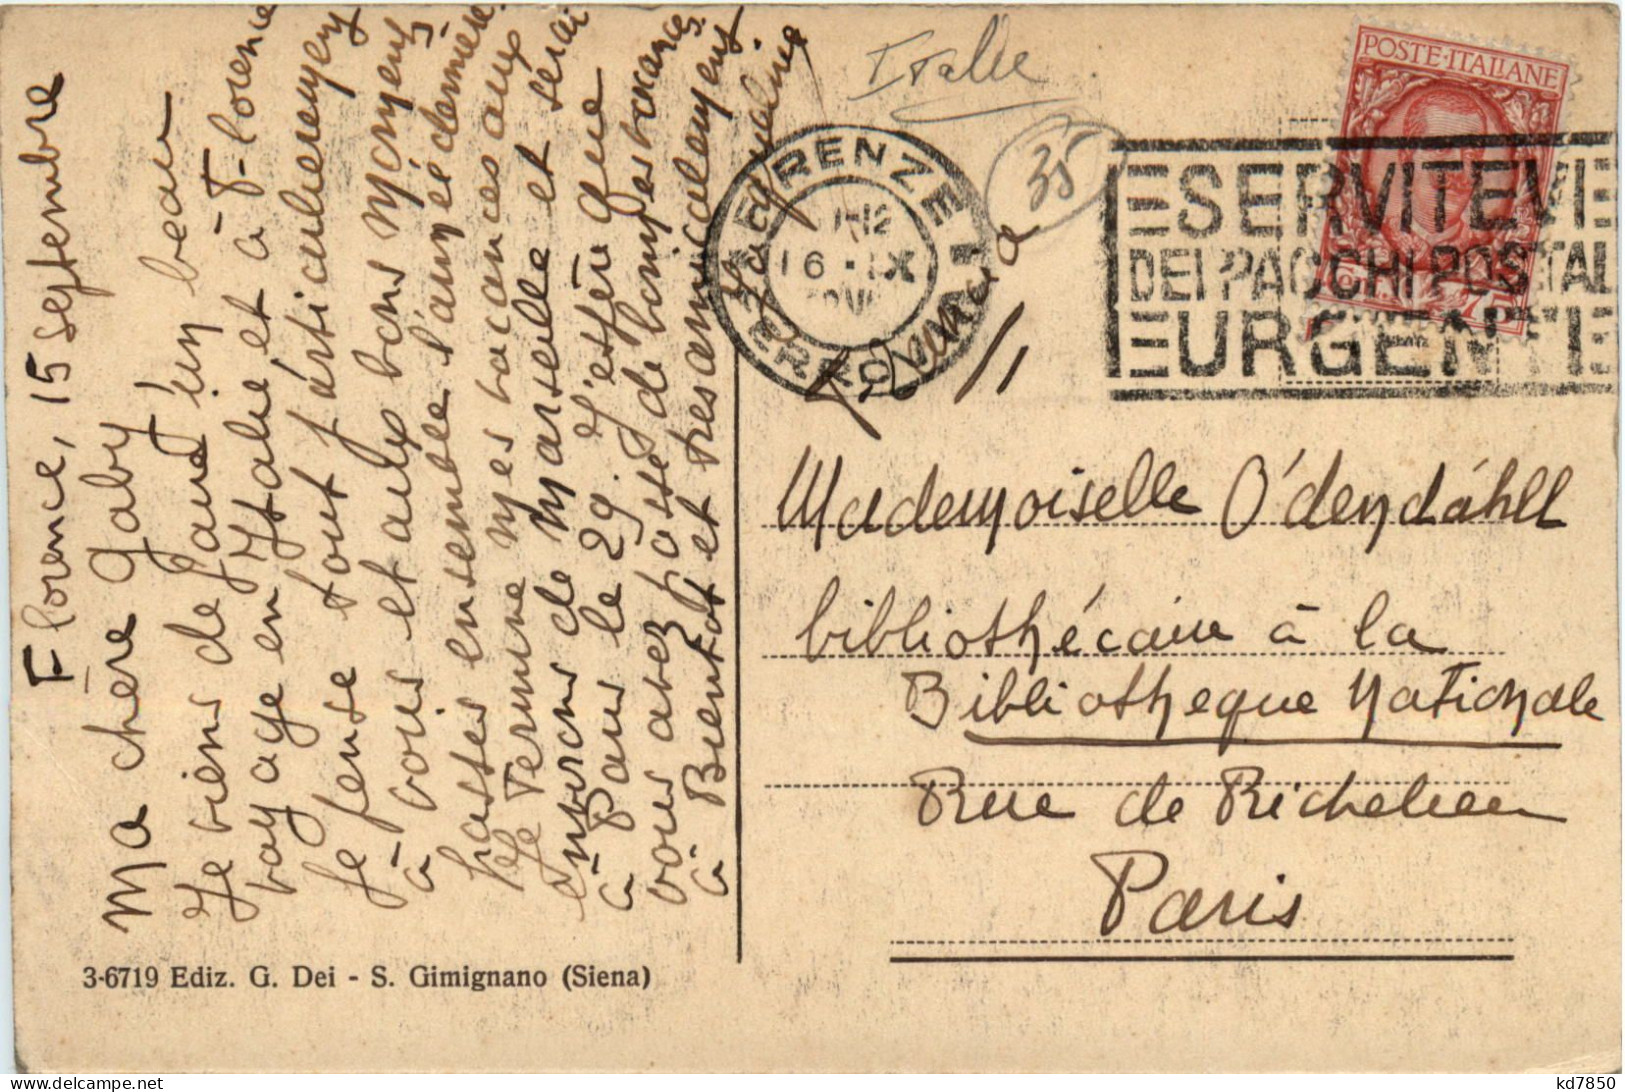 Florence, 15 Septembre
Ma chère Gaby
Je viens de faire un beau
voyage en Italie et à Florence
je pense tout particulièrement
à vous et aux bons moments
passés ensemble l'année dernière.
Je termine mes vacances aux
environs de Marseille et serai
à Paris le 29. J'espère que
vous avez passé de bonnes vacances
à Bientôt et très amicalement
Italie
35
FIRENZE
11-12
16·IX
FERROVIA
POSTE·ITALIANE
SERVITEVI
DEI PACCHI POSTALI
URGENTI
Mademoiselle O'dendáhll
bibliothécaire à la
Bibliotheque Nationale
Rue de Richelieu
Paris
3-6719 Ediz. G. Dei - S. Gimignano (Siena)
kd7850